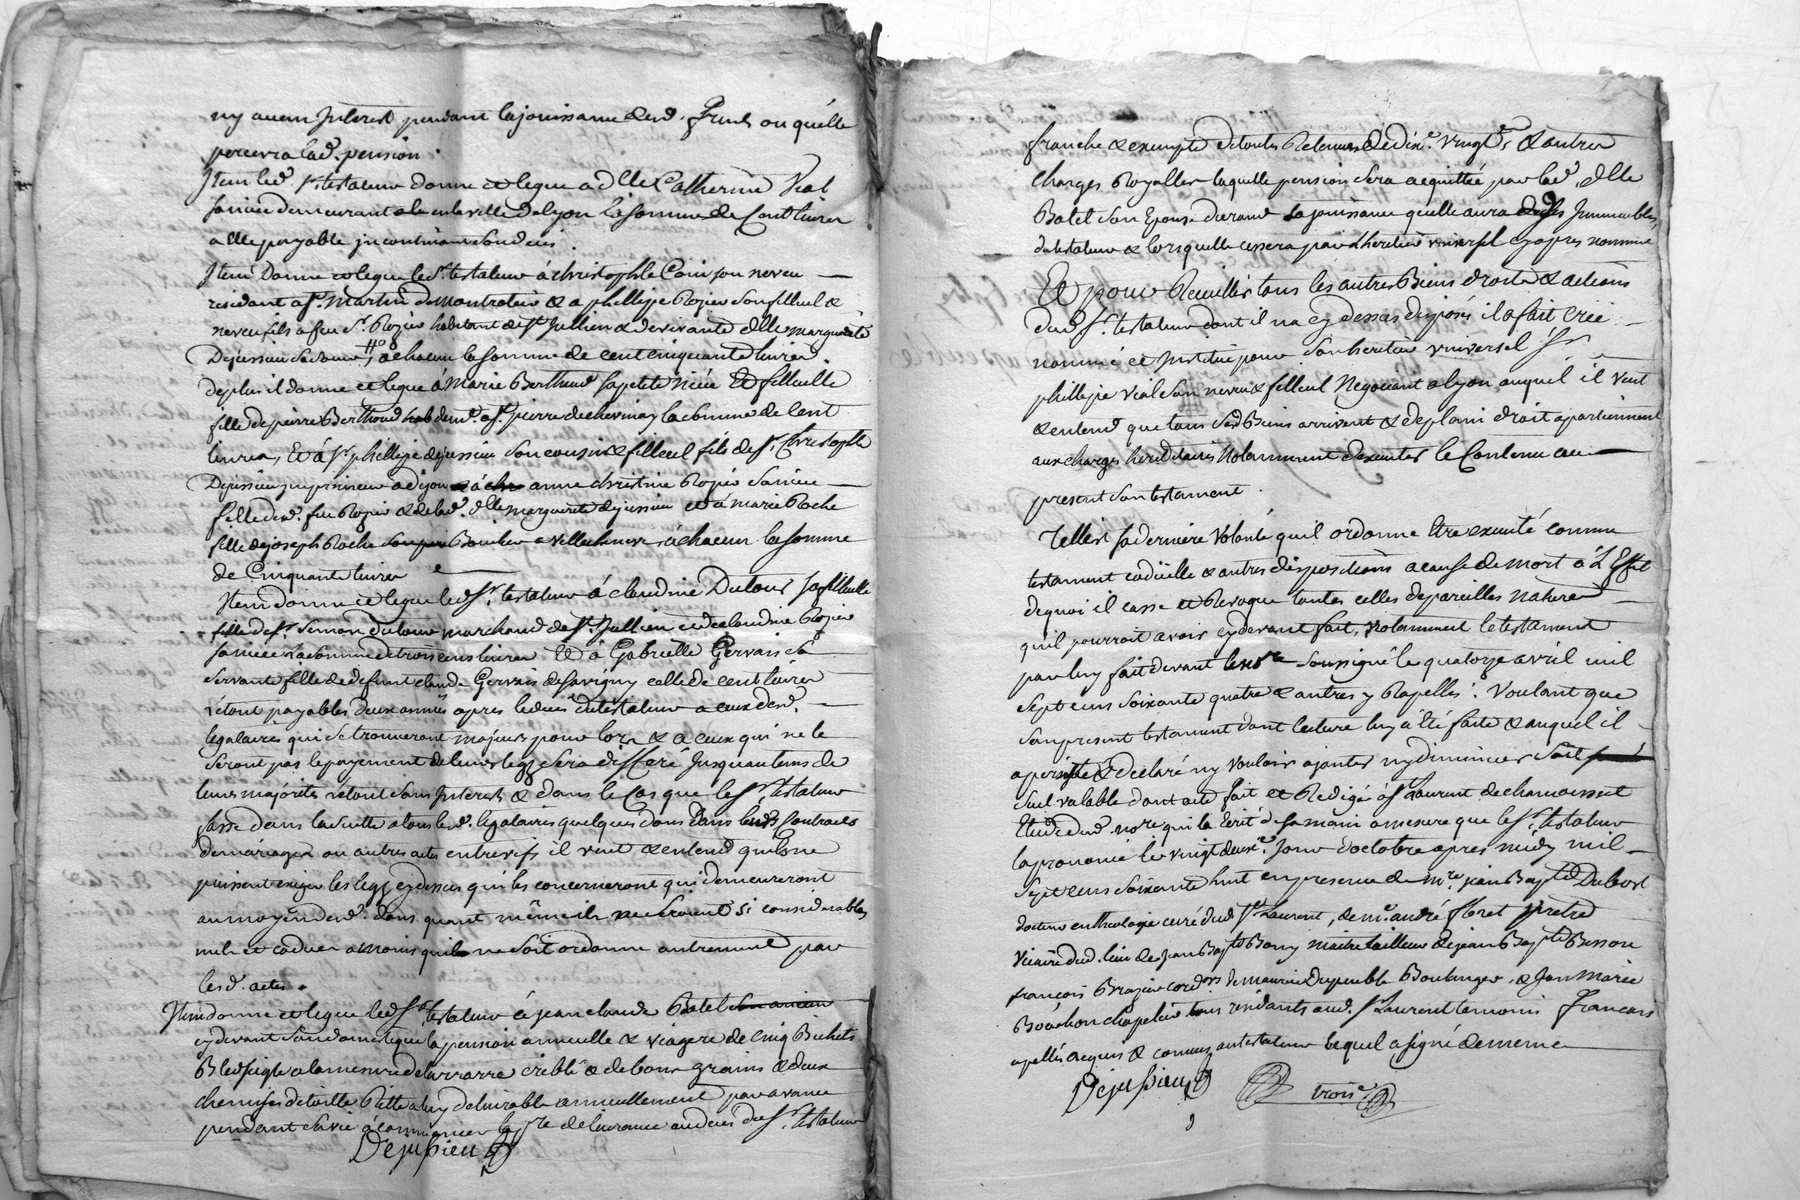 ny aucun Interest pendant la jouissance desd. fruits ou qu'elle
percevra lad. pension.
Item led. Sr. testateur donne et legue a dlle Catherine Vial
sa niece demeurant en la ville de lyon la somme de Cent livres
a elle payable incontinant son deces.
Item Donne et legue led. Sr. testateur à christophle son neveu
residant a St. Martin de & a phillipe Rozier son filleul &
neveu fils a feu Sr. Rozier habitant de St. Jullien & de vivante dlle marguerite
Dejussieu sa à chacun la somme de cent cinquante livres.
de plus il donne et legue à Marie Berthoud sa petite niéce Et filleulle
fille de pierre Berthoud hab demt. a St. pierre de chevinay la somme de Cent
livres, Et à Sr. phillipe dejussieu son cousin & filleul fils de Sr. Christophle
Dejussieu imprimeur a dijon a anne christine Rozier sa niéce
fille dud. feu Rozier & de lad. dlle marguerite dejussieu et à marie Roche
fille de joseph Roche Boucher a villechenéve, à chacun la somme
de Cinquante livres
Item donne et legue led. Sr. testateur à claudine Dutour sa filleulle
fille de Sr. Simon dutour marchand de St. Jullien et de claudine Rozier
sa niéce la somme de trois cens livres Et a Gabrielle Gervais sa
servante fille de deffunt claude Gervais de savigny celle de cent livres
le tout payables deux années apres le deces du testateur a ceux desd.
légataires qui se trouveront majeurs pour lors & a ceux qui ne le
seront pas le payement de leurs legs sera differé jusquau tems de
leurs majorités le tout sans Interest & dans le Cas que le Sr. testateur
fasse dans la suitte a tous lesd. légataires quelques dons dans leurs Contracts
de mariages ou autres actes entrevifs il veut & entend quils ne
puissent exiger les legs cydessus qui les concerneront qui demeureront
au moyen desd. dons quant même ils ne seroient si considerables
nuls et caducs a moins quil ne soit ordonné autrement par
lesd. actes.
Item donne et legue led. Sr. testateur à jean claude Batel son ancien
cydevant son domestique la pension annuelle & viagere de cinq Bichets
Bled seigle a la mesure de larrarre criblé & de bons grains & deux
chemises de toille Ritte a luy delivrable annuellement par avance
pendant sa vie a commancer la pre. delivrance au deces du Sr. testateur
Dejussieu
franche & exempte de toutes Retenues de dixe. vingte. & autres
charges Royalles laquelle pension sera acquittée par lad. dlle
Batel son Epouse durant la jouissance quelle aura desds Immeubles,
du testateur & lorsquelle cessera par l'heritier universel cy apres nommé
Et pour Recuillir tous les autres Biens droits & actions
dud. Sr. testateur dont il na cy dessus disposés il a fait créé
nommé et Institué pour son heritier universel Sr.
phillipe Vial son neveu & filleul Negociant a lyon auquel il veut
& entend que tous sesd Biens arrivent & de plain droit apartiennent
aux charges hereditaires Notamment d'executer le Contenu au
present son testament.
Telle est sa derniére Volonté quil ordonne Etre executé comme
testament codicille & autres dispositions a cause de mort à L'Effet
dequoi il casse et Revoque toutes celles de pareilles Natures
quil pourroit avoir cydevant fait, Notamment le testament
par luy fait devant le nore soussigné le quatorze avril mil
sept cens soixante quatre & autres y Rapellés. Voulant que
son present testament dont lecture luy à Eté faite & auquel il
a persisté & déclaré ny vouloir ajouter ny diminuer soit
seul valable dont acte fait et Redigé a St Laurent de chamousset
Etude dud. nore qui la Ecrit de sa main a mesure que le Sr. testateur
la prononcé le vingt deuxe. jour d'octobre apres midy mil
sept cens soixante huit en presence de Mre. jean Bapte Dubost
docteur en theologie curé dud St Laurent, de Mre. andré floret prêtre
Vicaire dud. lieu de jean Bapte Bony maitre tailleur de jean Bapte Besson
françois Brazier cordr. de maurice Depeuble Boulanger, & Jean Marie
Bouchon chapelier tous residants aud. St Laurent temoins françois
apellés acquis & connus au testateur lequel a signé de meme
Dejussieu trois e